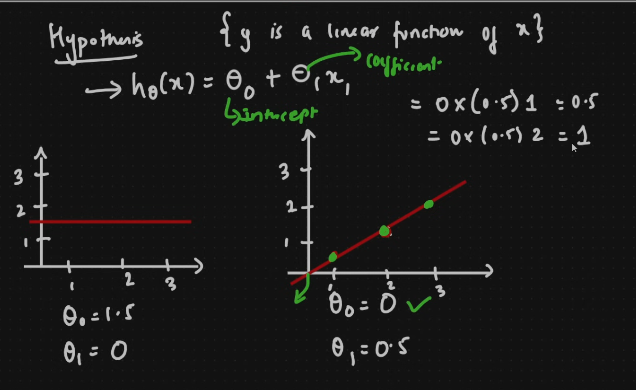 Hypothesis
{y is a linear function of x}
→ hθ(x) = θ₀ + θ₁x₁
coefficient
intercept
= 0x(0.5) 1 = 0.5
= 0x(0.5) 2 = 1
3
2
1
1 2 3
θ₀ = 1.5
θ₁ = 0
3
2
1
1 2 3
θ₀ = 0 ✓
θ₁ = 0.5